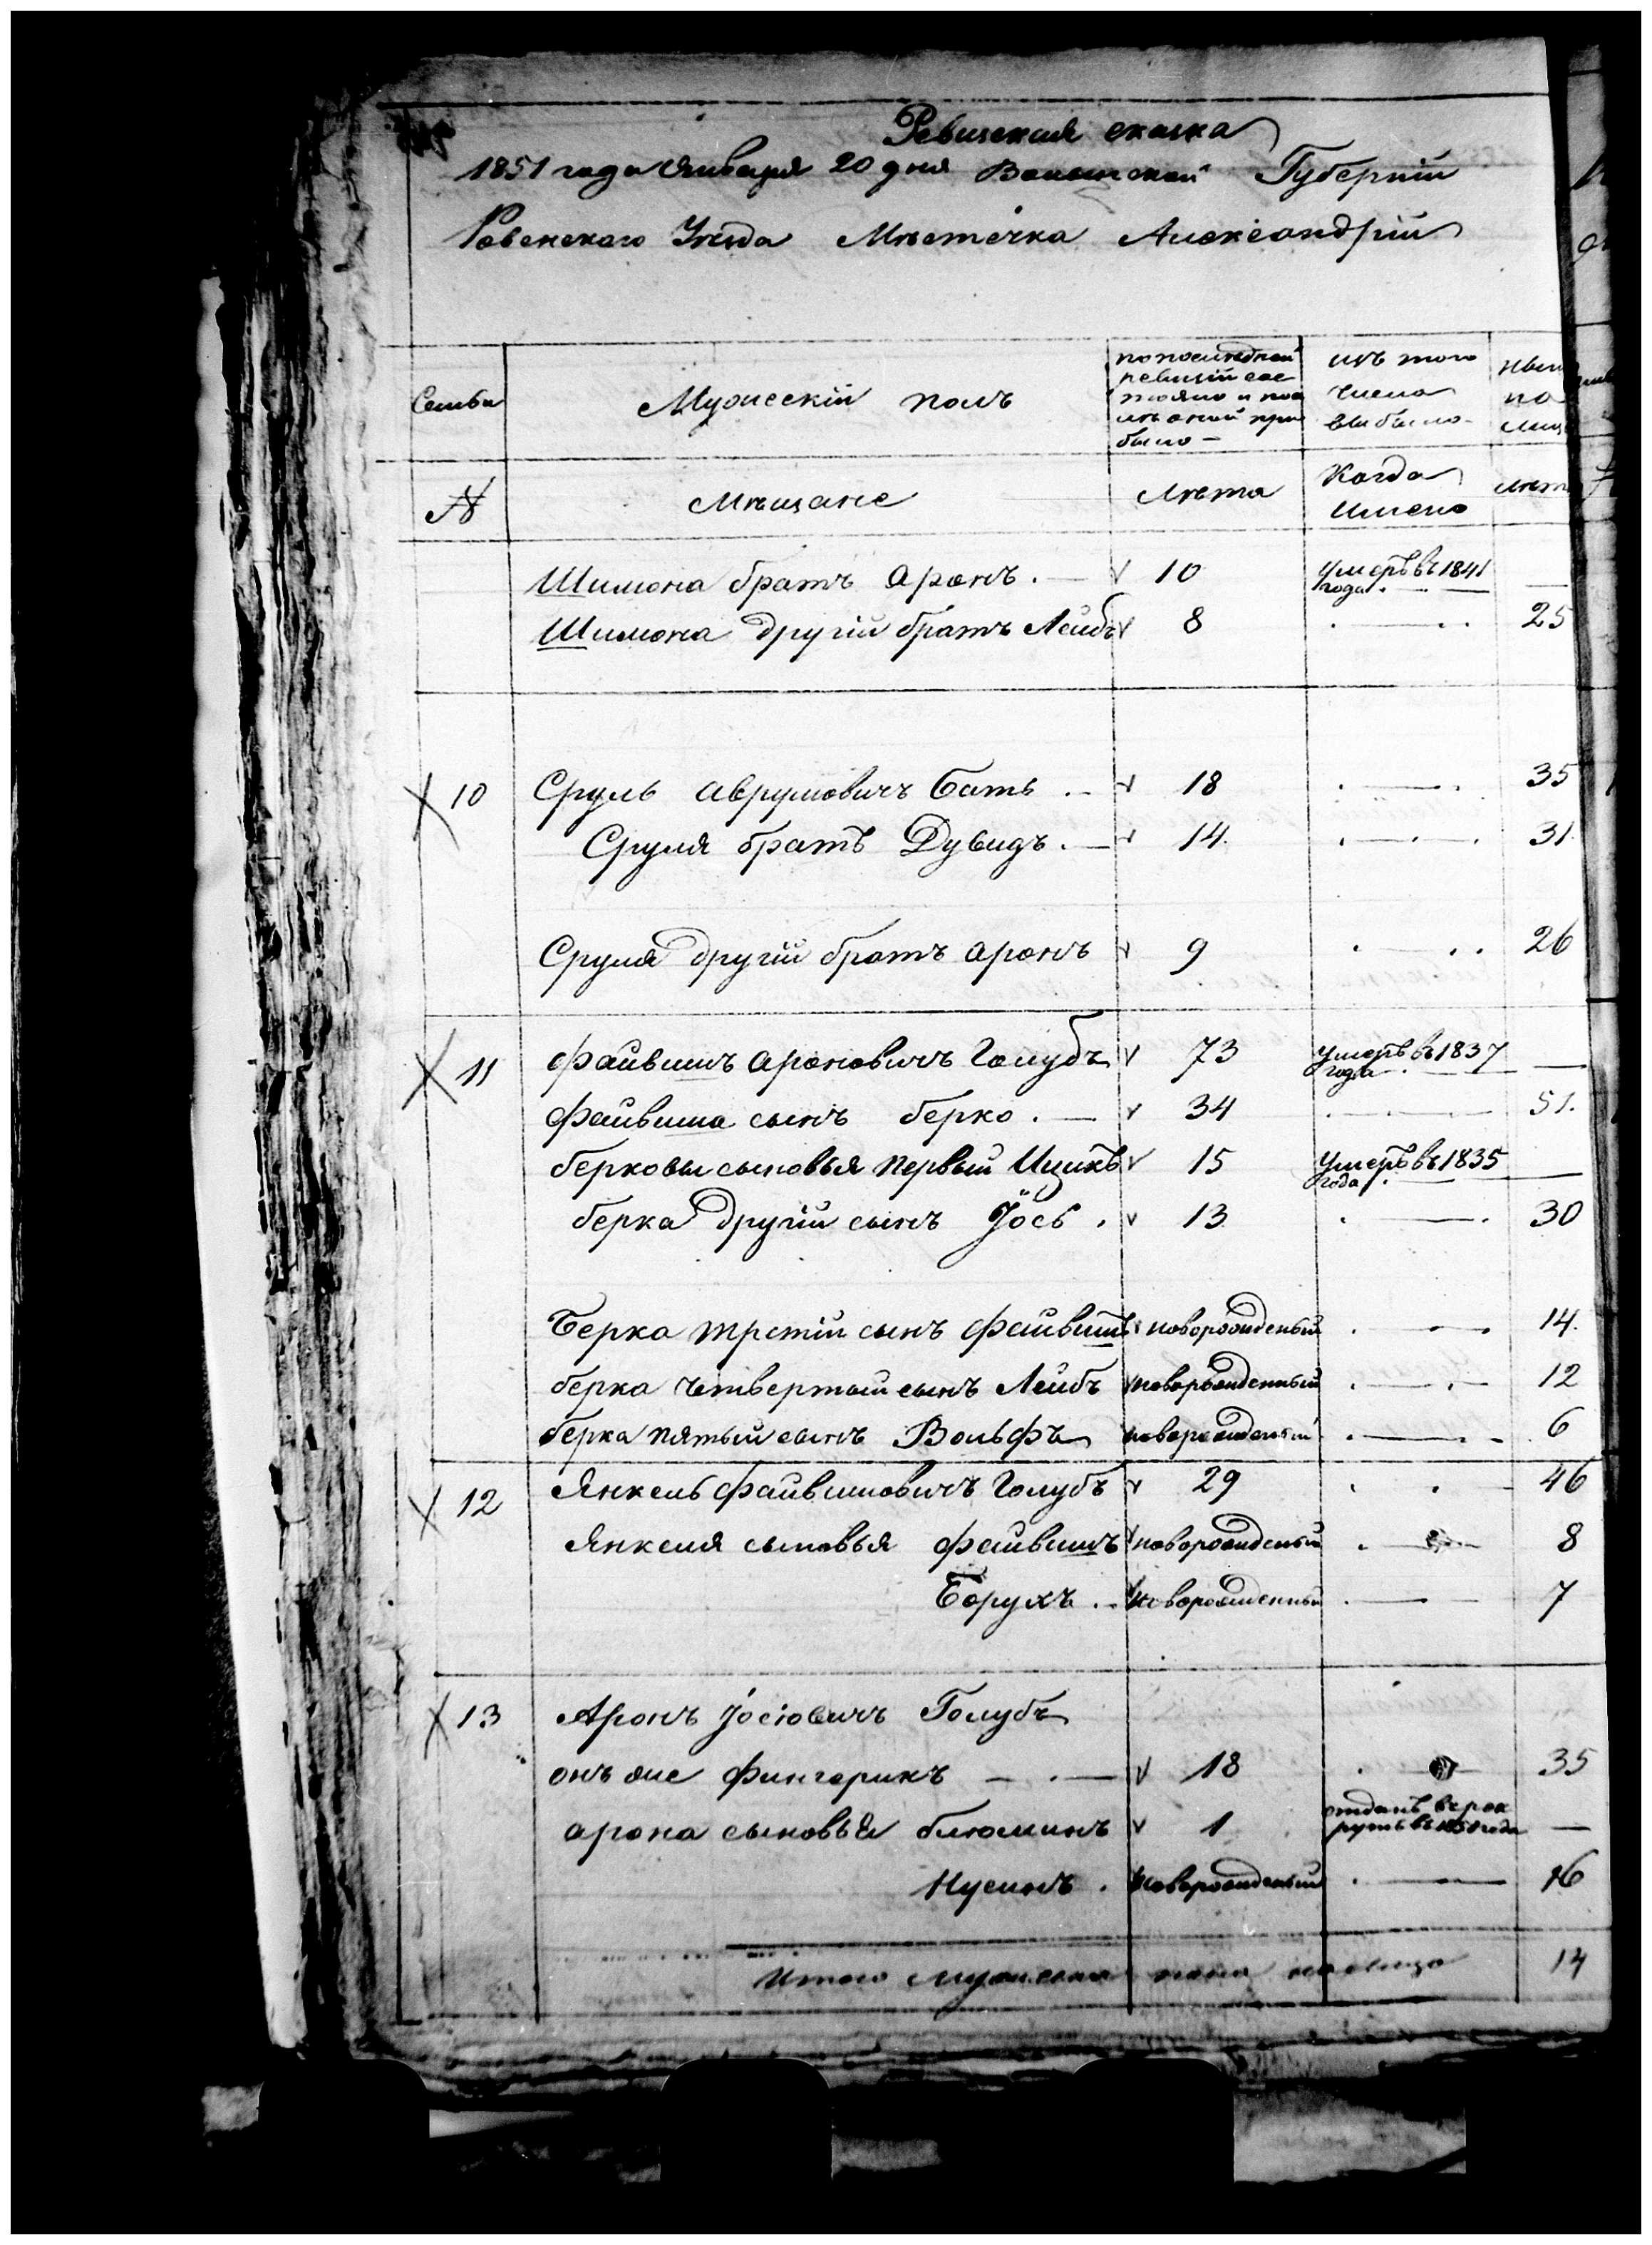 Ревизская сказка
1851 года Января 20 дня Волынской Губерніи
Ровенского Уезда Мѣстечка Александріи
Семьи
Мужескій полъ
по последней
ревизій сос
тояло и пос
лѣ оной при
было —
изъ того
числа
выбыло
ныне
на
лиц
№
Мѣщане
Лѣта
Когда
Имено
лѣт
Шимона братъ Аронъ . — v 10 Умеръ въ 1841 года . —
Шимона другій братъ Лейбъ v 8 25
X 10 Сруль Аврумовичъ Батъ . — v 18 35
Сруля братъ Дувидъ . — v 14. 31.
Сруля другій братъ Аронъ v 9 26
X 11 Файвишъ Ароновичъ Голубъ v 73 Умеръ въ 1837 года . —
Файвиша сынъ Берко . — v 34 51.
Берковы сыновья первый Ицикъ v 15 Умеръ въ 1835 года . —
Берка другій сынъ Іось . v 13 30
Берка третій сынъ Файвишъ v новорожденый 14.
Берка четвертый сынъ Лейбъ v новорожденный 12
Берка пятый сынъ Вольфъ новорожденый 6
X 12 Янкель Файвишовичъ Голубъ v 29 46
Янкеля сыновья Файвишъ v новорожденый 8
Борухъ . — v новорожденный 7
X 13 Аронъ Іосіовичъ Голубъ
онъ же Фингерикъ — . — v 18 35
Арона сыновья Блюминъ v 1 отданъ въ рек
рутъ въ 1850 года —
Нусинъ . v новорожденый 16
Итого мужеска пола налицо 14